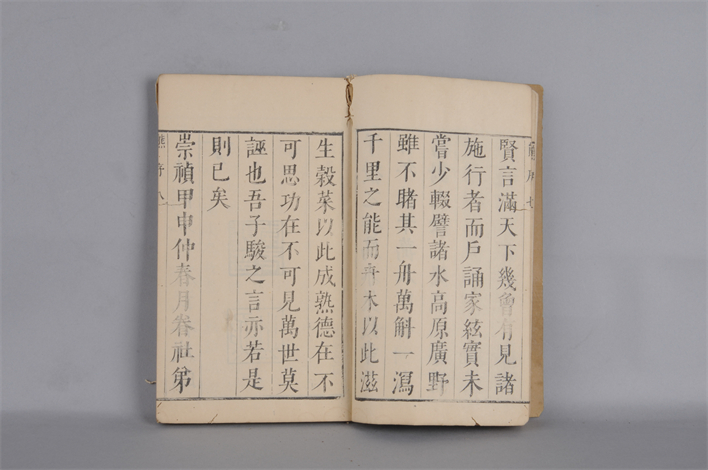 賢言滿天下幾曾有見諸
施行者而戶誦家絃實未
嘗少輟譬諸水高原廣野
雖不睹其一舟萬斛一瀉
千里之能而卉木以此滋
生榖菜以此成熟德在不
可思功在不可見萬世莫
誣也吾子駿之言亦若是
則已矣
崇禎甲申仲春月眷社弟